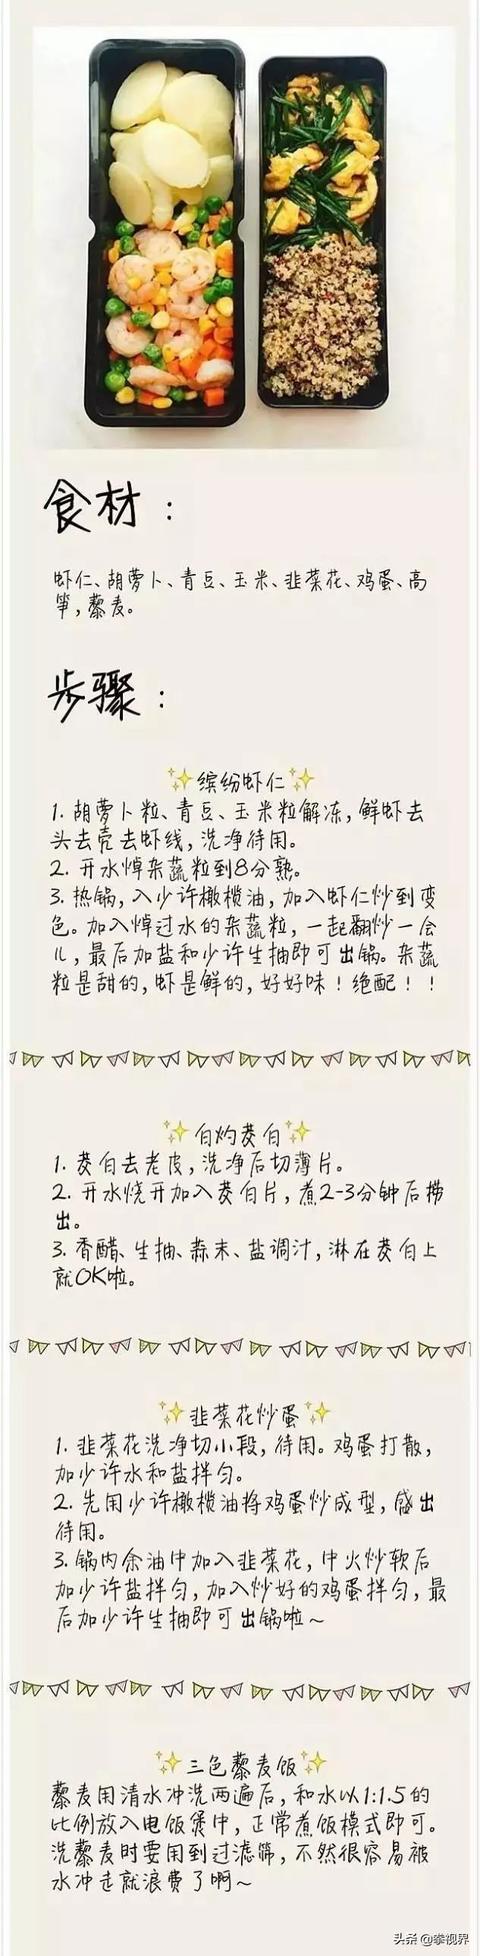 食材：
虾仁、胡萝卜、青豆、玉米、韭菜花、鸡蛋、高
笋，藜麦。
步骤：
缤纷虾仁
1. 胡萝卜粒、青豆、玉米粒解冻，鲜虾去
头去壳去虾线，洗净待用。
2. 开水焯杂蔬粒到8分熟。
3. 热锅，入少许橄榄油，加入虾仁炒到变
色。加入焯过水的杂蔬粒，一起翻炒一会
儿，最后加盐和少许生抽即可出锅。杂蔬
粒是甜的，虾是鲜的，好好味！绝配！！
白灼茭白
1. 茭白去老皮，洗净后切薄片。
2. 开水烧开加入茭白片，煮2-3分钟后捞
出。
3. 香醋、生抽、蒜末、盐调汁，淋在茭白上
就OK啦。
韭菜花炒蛋
1. 韭菜花洗净切小段，待用。鸡蛋打散，
加少许水和盐拌匀。
2. 先用少许橄榄油将鸡蛋炒成型，盛出
待用。
3. 锅内余油中加入韭菜花，中火炒软后
加少许盐拌匀，加入炒好的鸡蛋拌匀，最
后加少许生抽即可出锅啦～
三色藜麦饭
藜麦用清水冲洗两遍后，和水以1:1.5的
比例放入电饭煲中，正常煮饭模式即可。
洗藜麦时要用到过滤筛，不然很容易被
水冲走就浪费了啊～
头条 @拳视界